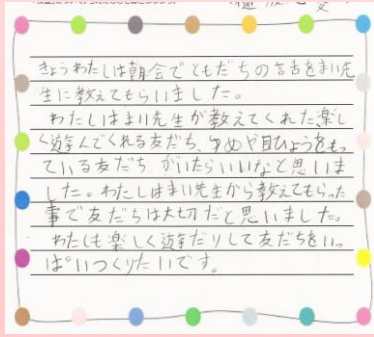 きょうわたしは朝会でともだちの言古をまい先
生に教えてもらいました。
わたしはまい先生が教えてくれた楽し
く遊んでくれる友だち、ゆめや目ひょうをもっ
ている友だちがいたらいいなと思いま
した。わたしはまい先生から教えてもらった
事で友だちは大切だと思いました。
わたしも楽しく遊だりして友だちをいっ
ぱいつくりたいです。